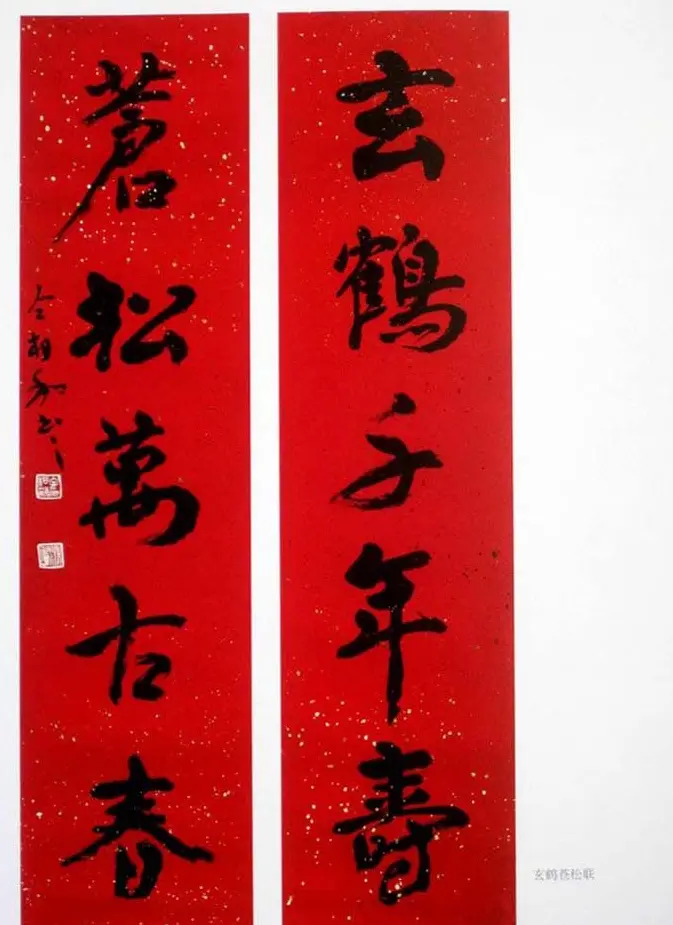 玄鶴千年壽
蒼松萬古春
玄鹤苍松联